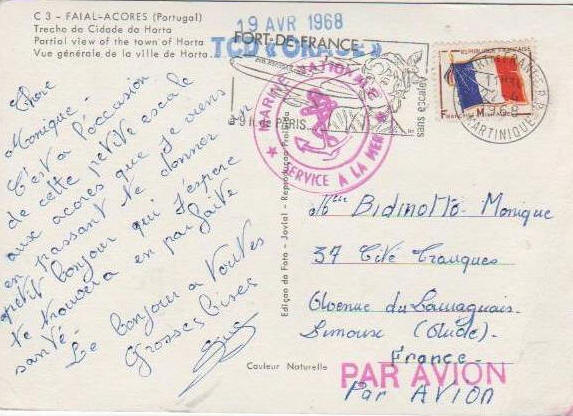 C 3 - FAIAL-AÇORES (Portugal)
Trecho da Cidade da Horta
Partial view of the town of Horta
Vue générale de la ville de Horta
19 AVR 1968
TCD "ORAGE"
FORT-DE-FRANCE
sans escale
PARIS
REPUBLIQUE FRANÇAISE
F M
MARTINIQUE
1968
MARINE NATIONALE
SERVICE A LA MER
Chère
Monique -
C'est a l'occasion
de cette petite escale
aux acores que je viens
en passant te donner un
petit bonjour qui j'espère
te trouvera en parfaite
santé -
Le bonjour a toutes
Grosses bises
Edição da Foto - Jovial - Reprodução Proibida
Couleur Naturelle
Melle Bidinotto Monique
37 Cité
Avenue du Lauraguais
Limoux (Aude)
France
PAR AVION
Par AVION